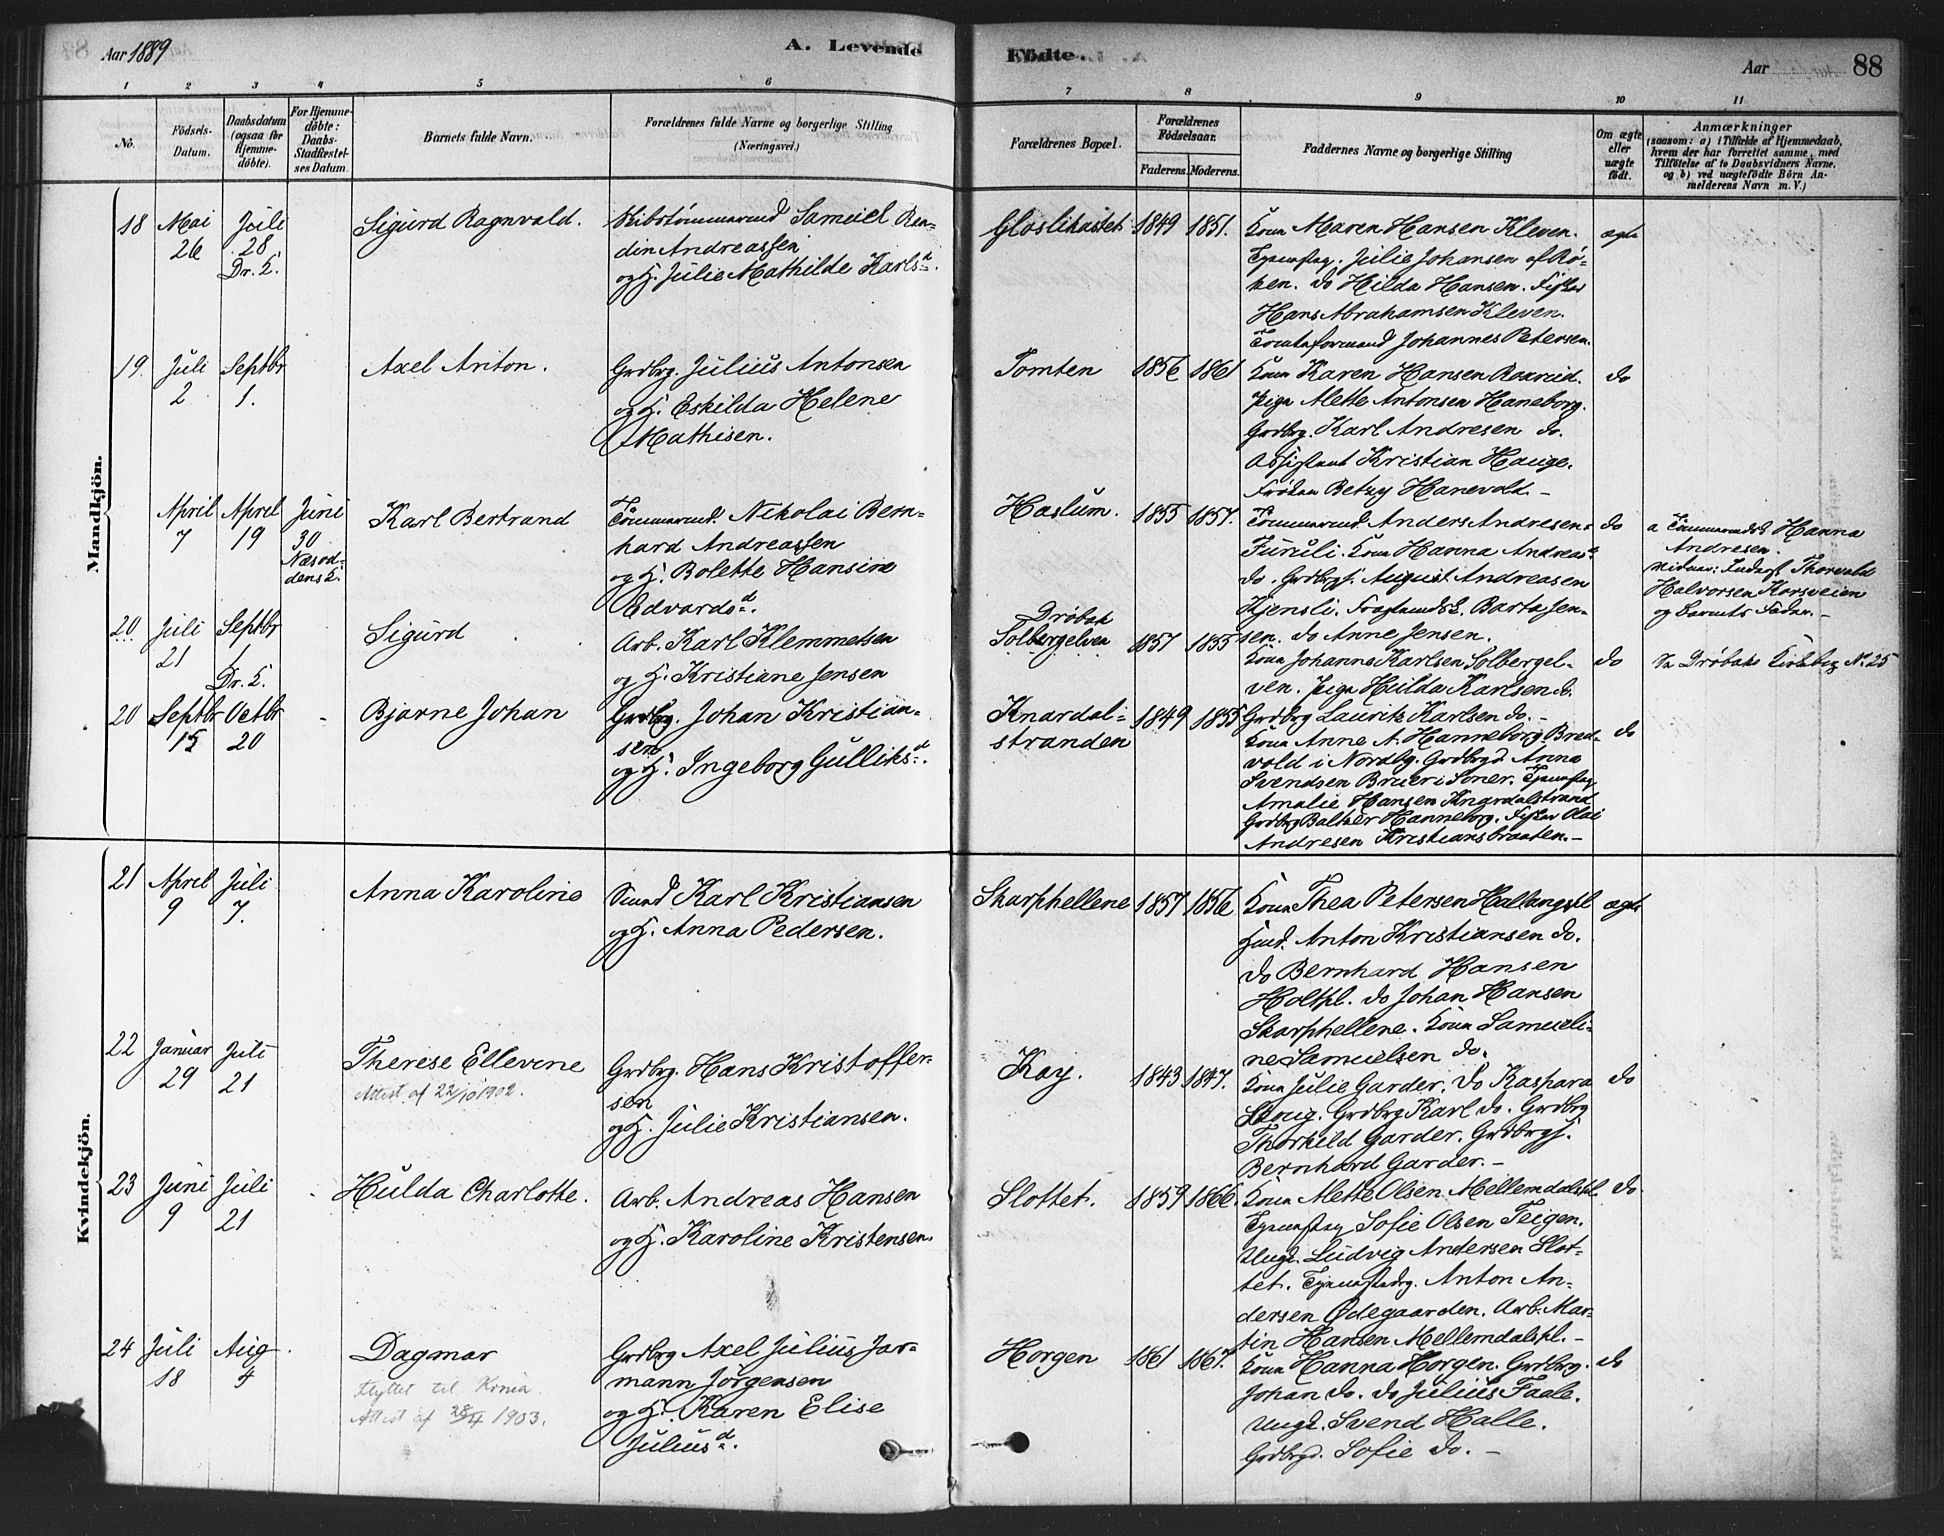 Aar 1889
A. Levende
Födte.
Aar
88
1 2 3 4 5 6 7 8 9 10 11
No.
Födsels-Datum.
Daabsdatum (ogsaa for Hjemme-döbte).
For Hjemme-döbte: Daabs-Stadfæstel-ses Datum.
Barnets fulde Navn.
Forældrenes fulde Navne og borgerlige Stilling
(Næringsvei.)
Forældrenes Bopæl.
Forældrenes Födselsaar.
Faderens. Moderens.
Faddernes Navne og borgerlige Stilling
Om ægte eller uægte födt.
Anmærkninger
(saasom: a) i Tilfælde af Hjemmedaab,
hvem der har forrettet samme, med
Tilföielse af to Daabsvidners Navne,
og b) ved uægtefödte Börn An-
melderens Navn m. V.)
Mandkjön.
18 Mai 26 Juli 28 Dr. K.
Sigurd Ragnvald.
Skibstømmermd Samuel Ran-
din Andreassen
og H. Julie Mathilde Karlsd.
1849 1851.
Kona Maren Hansen Kleven.
Tjenestpg. Julie Johansen af Rø-
ken. do Hilda Hansen. Fisker
Hans Abrahamsen Kleven.
Johannes Petersen.
ægte
19. Juli 2 Septbr 1.
Axel Anton.
Grdbrg. Julius Antonsen
og H. Eskilda Helene
Mathisen.
Tomten 1856 1861
Kona Karen Hansen
Pige Mette Antonsen Haneborg.
Grdbrg. Karl Andresen do.
Assistent Kristian Hauge.
Frøken Betzy Hanevold. -
do
April 7 April 19 Juni 30 Næsod-dens K.
Karl Bertrand
Tømmermd. Nikolai Bern-
hard Andreassen
og H. Bolette Hansine
Edvardsd.
Haslum. 1855 1857.
Tømmermd. Anders Andresen
Furuli. Kona Hanna Andreas
do. Grdbrgs. August Andreasen
Hjensli.
sen. do Anne Jensen.
do
a Tømmermds K. Hanna
Andresen.
Thorvald
Halvorsen Korsveien
og Barnets Fader. -
20 Juli 21 Septbr 1 Dr. K.
Sigurd
Arb. Karl Klemmetsen
og H. Kristiane Jensen
Drøbak
Solbergelven 1857 1855
Kona Johanne Karlsen Solbergel-
ven. Pige Hulda Karlsen do.
Grdbrg Lauritz Karlsen do. -
do
Se Drøbaks Kirkebog No 25
20 Septbr 15 Octbr 20
Bjarne Johan
Grdbrg. Johan Kristian-
sen
og H. Ingeborg Gulliksd.
Knardal-
stranden 1849 1855
Kona Anne A. Hanneborg Bred-
vold i Nordbg. Grdbrgd Anna
Svendsen Bruer i Soner. Tjenestpg
Amalie Hansen Knardalstrand
Grdbrg Baltzer Hanneborg. Fisker Olai
Andresen Kristiansbraaten. -
do
Kvindekjön.
21 April 9 Juli 7.
Anna Karoline
Karl Kristiansen
og H. Anna Pedersen.
Skarphellene 1857 1856
Kona Thea Petersen Hallangspl
Anton Kristiansen do.
do Bernhard Hansen
Holtpl. do Johan Hansen
Skarphellene. Kona Samueli-
ne Samuelsen do.
ægte
22 Januar 29 Juli 21
Therese Ellevine
Attest af 22/10 1902.
Grdbrg. Hans Kristoffer-
sen
og H. Julie Kristiansen.
Kay. 1843 1847.
Kona Julie Garder. do Kaspara
Skoug. Grdbrg Karl do. Grdbrg
Thorkild Garder. Grdbrgs.
Bernhard Garder. -
do
23 Juni 9 Juli 21
Hulda Charlotte.
Arb. Andreas Hansen
og H. Karoline Kristensen.
Slottet. 1859 1866.
Kona Mette Olsen Mellemdalspl.
Tjenestpg Sofie Olsen Teigen.
Ungk. Ludvig Andersen Slot-
tet. Anton An-
dersen Ødegaarden. Arb. Mar-
tin Hansen Mellemdalspl. -
do.
24 Juli 18 Aug 4
Dagmar
flyttet til Krnia
Attest af 1903.
Grdbrg Axel Julius Jar-
mann Jörgensen
og H. Karen Elise
Juliusd.
Horgen 1861 1867.
Kona Hanna Horgen. Grdbrg.
Johan do. do Julius Faale.
Ungk. Svend Halle.
Grdbrgd. Sofie do. -
do